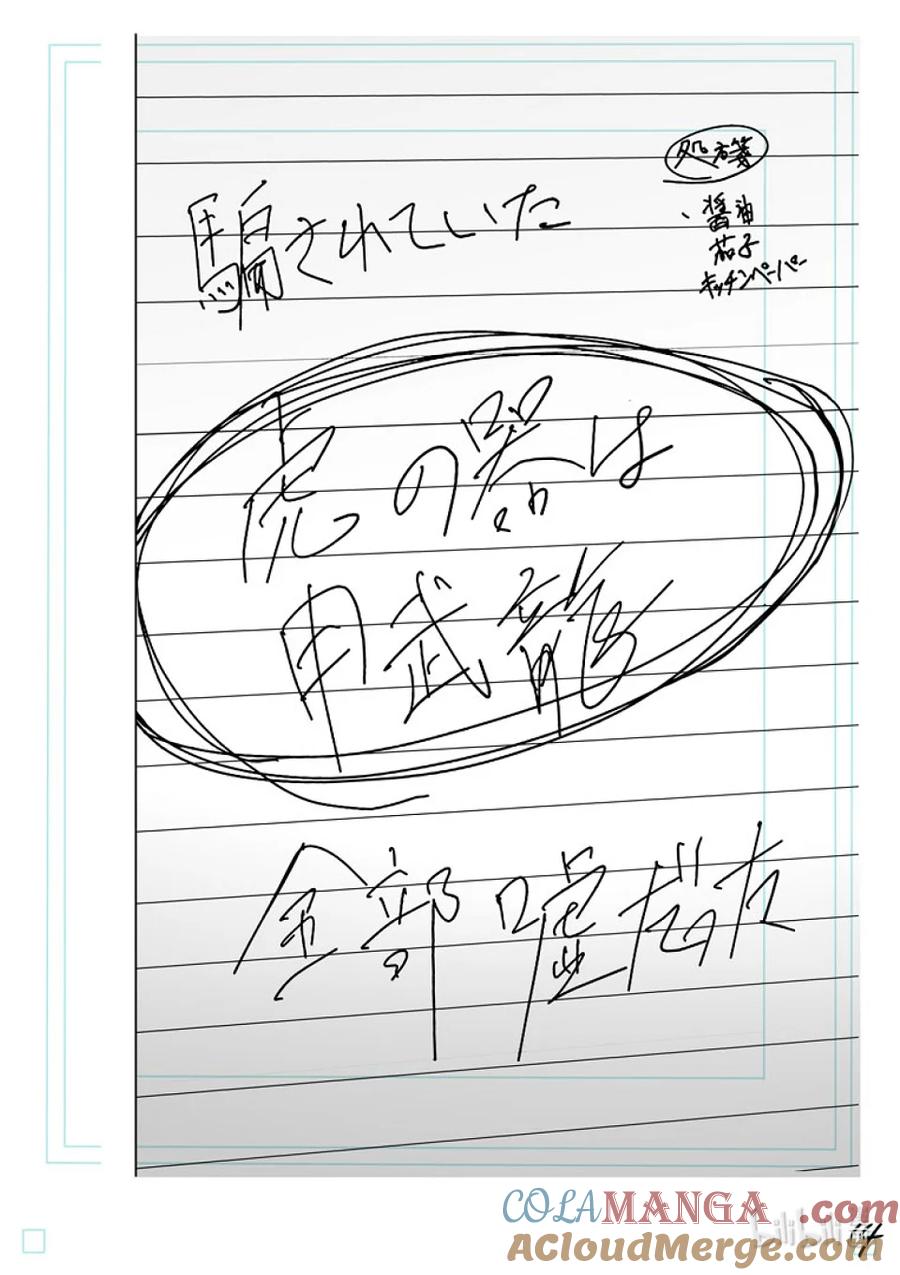 処方箋
、醤油
茄子
キッチンペーパー
騙されていた
虎の器は
甲武龍
全部嘘だった
COLAMANGA.com
bilibili
AcloudMerge.com